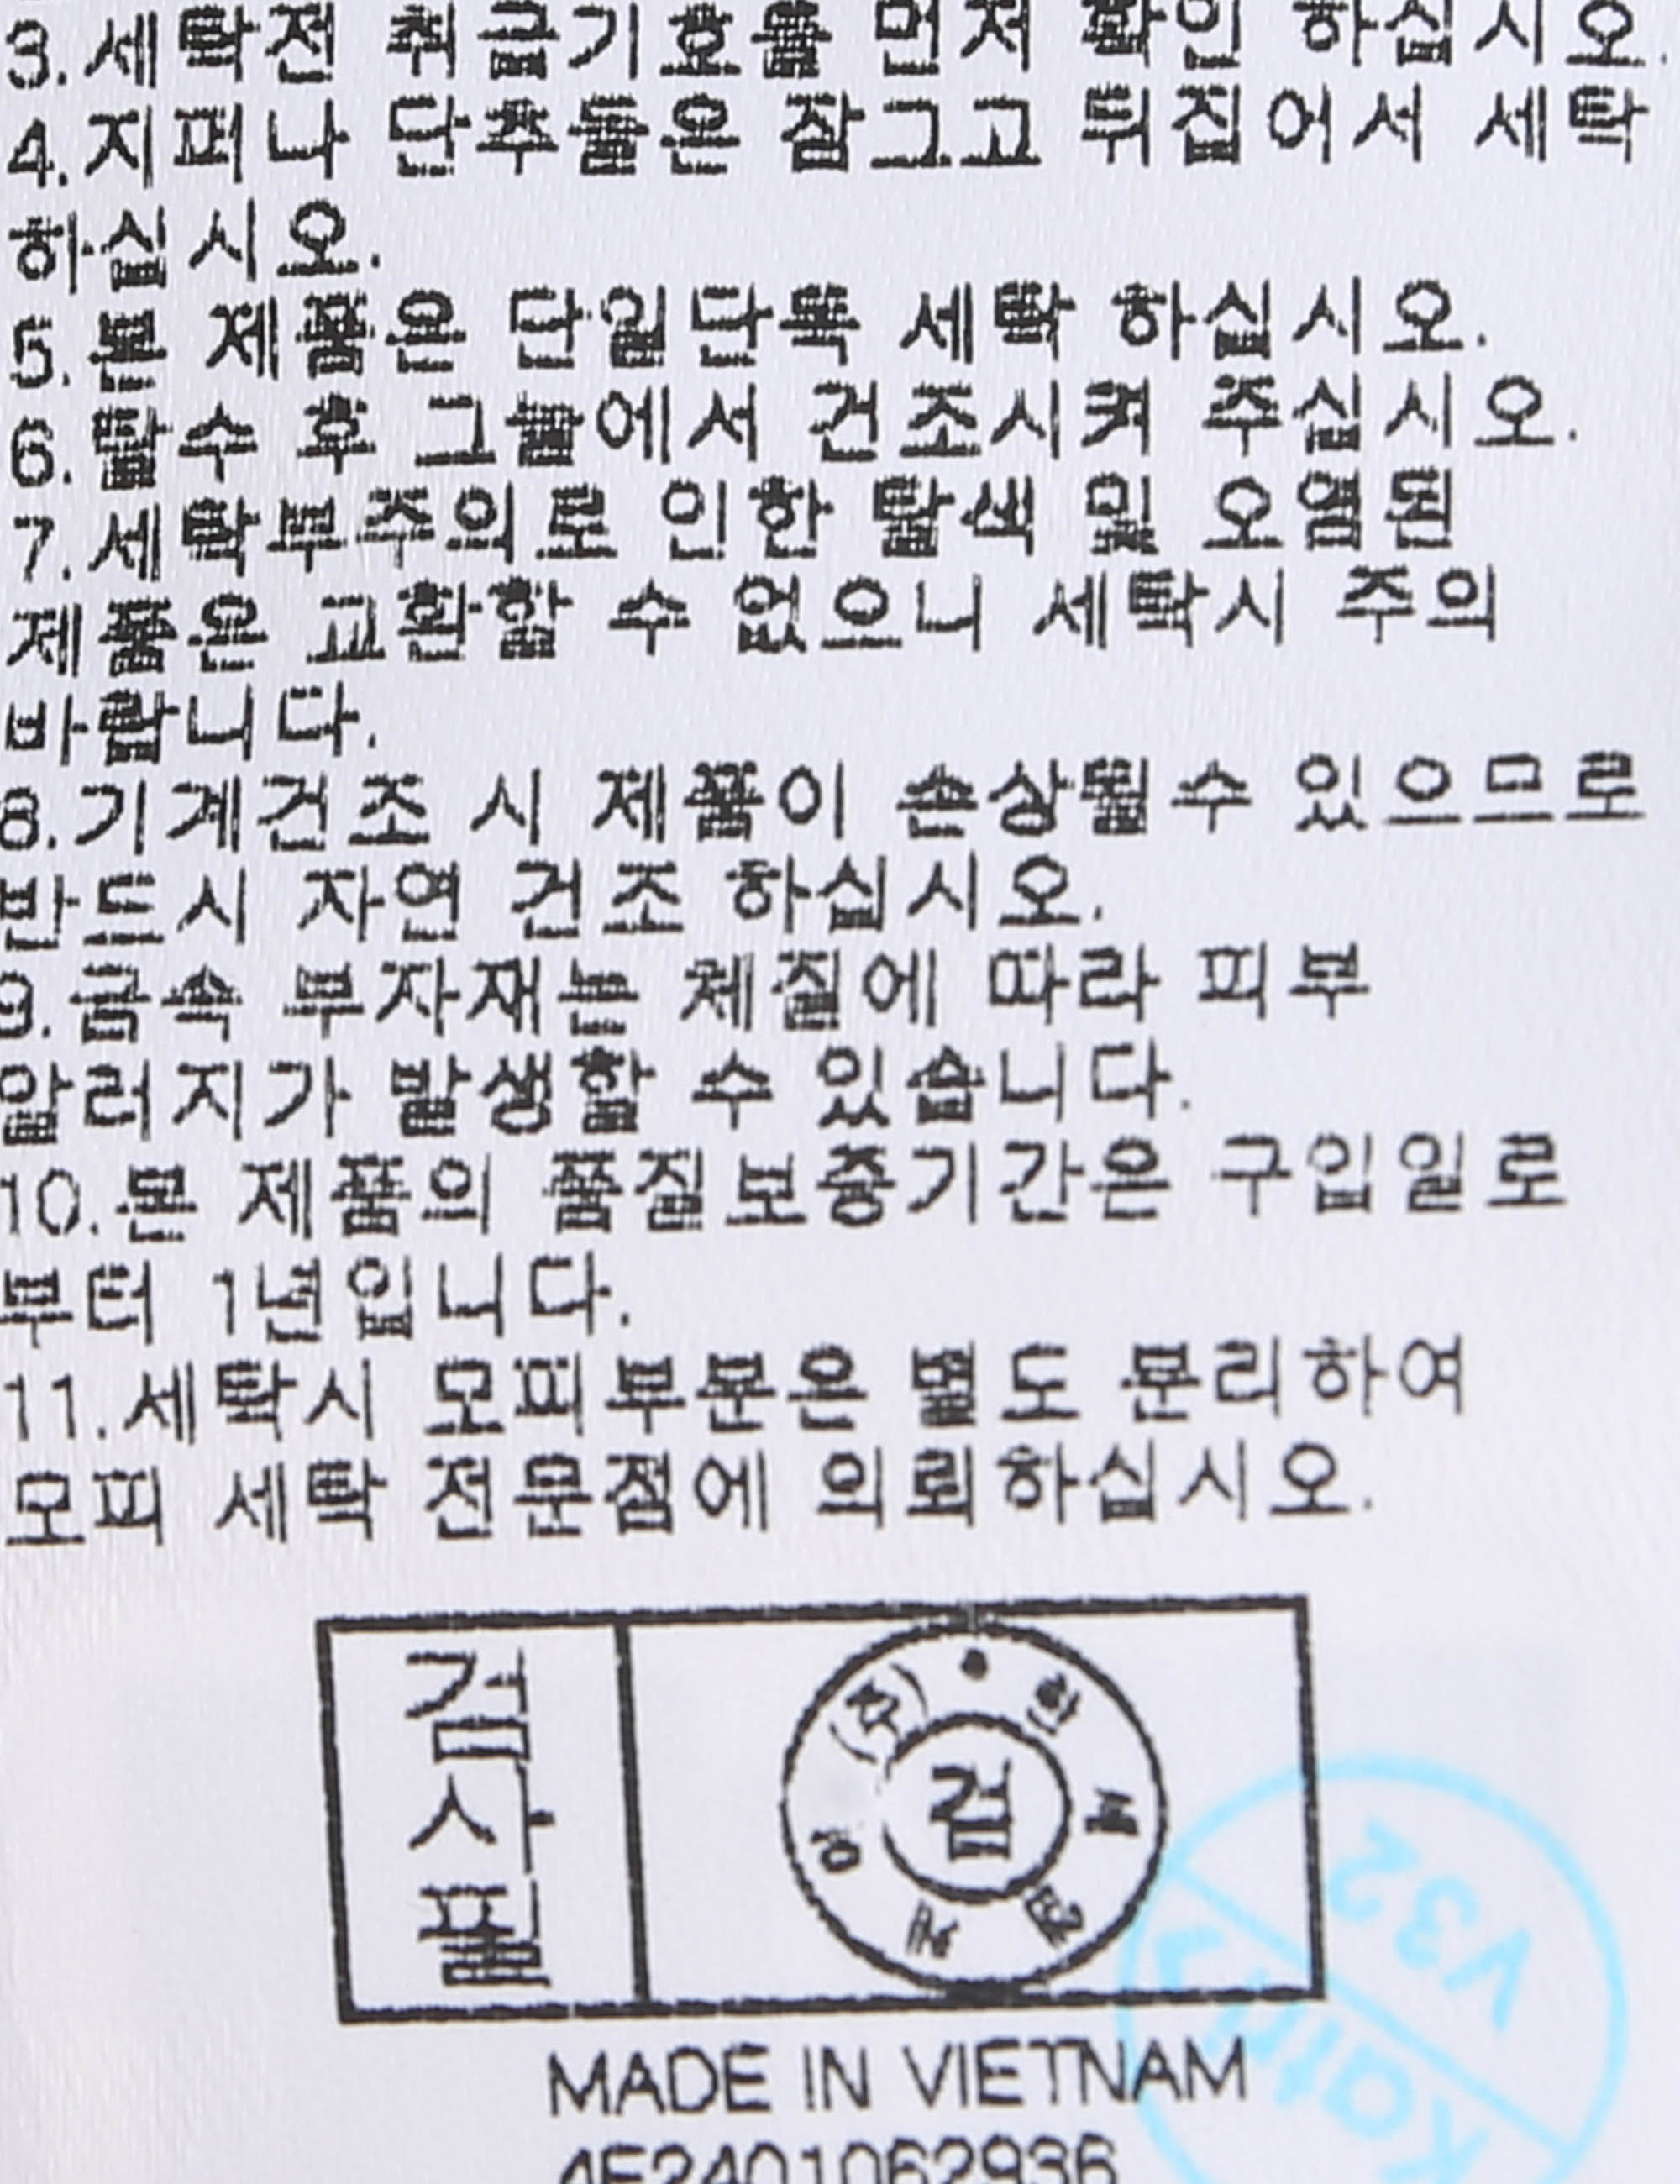 3.세탁전 취급기호를 먼저 확인 하십시오.
4.지퍼나 단추들은 잠그고 뒤집어서 세탁
하십시오.
5.본 제품은 단일단독 세탁 하십시오.
6.탈수 후 그늘에서 건조시켜 주십시오.
7.세탁부주의로 인한 탈색 및 오염된
제품은 교환할 수 없으니 세탁시 주의
바랍니다.
8.기계건조 시 제품이 손상될수 있으므로
반드시 자연 건조 하십시오.
9.금속 부자재는 체질에 따라 피부
알러지가 발생할 수 있습니다.
10.본 제품의 품질보증기간은 구입일로
부터 1년입니다.
11.세탁시 모피부분은 별도 분리하여
모피 세탁 전문점에 의뢰하십시오.
검사필
(주)
검
MADE IN VIETNAM
4E2401062936
Katri
V32